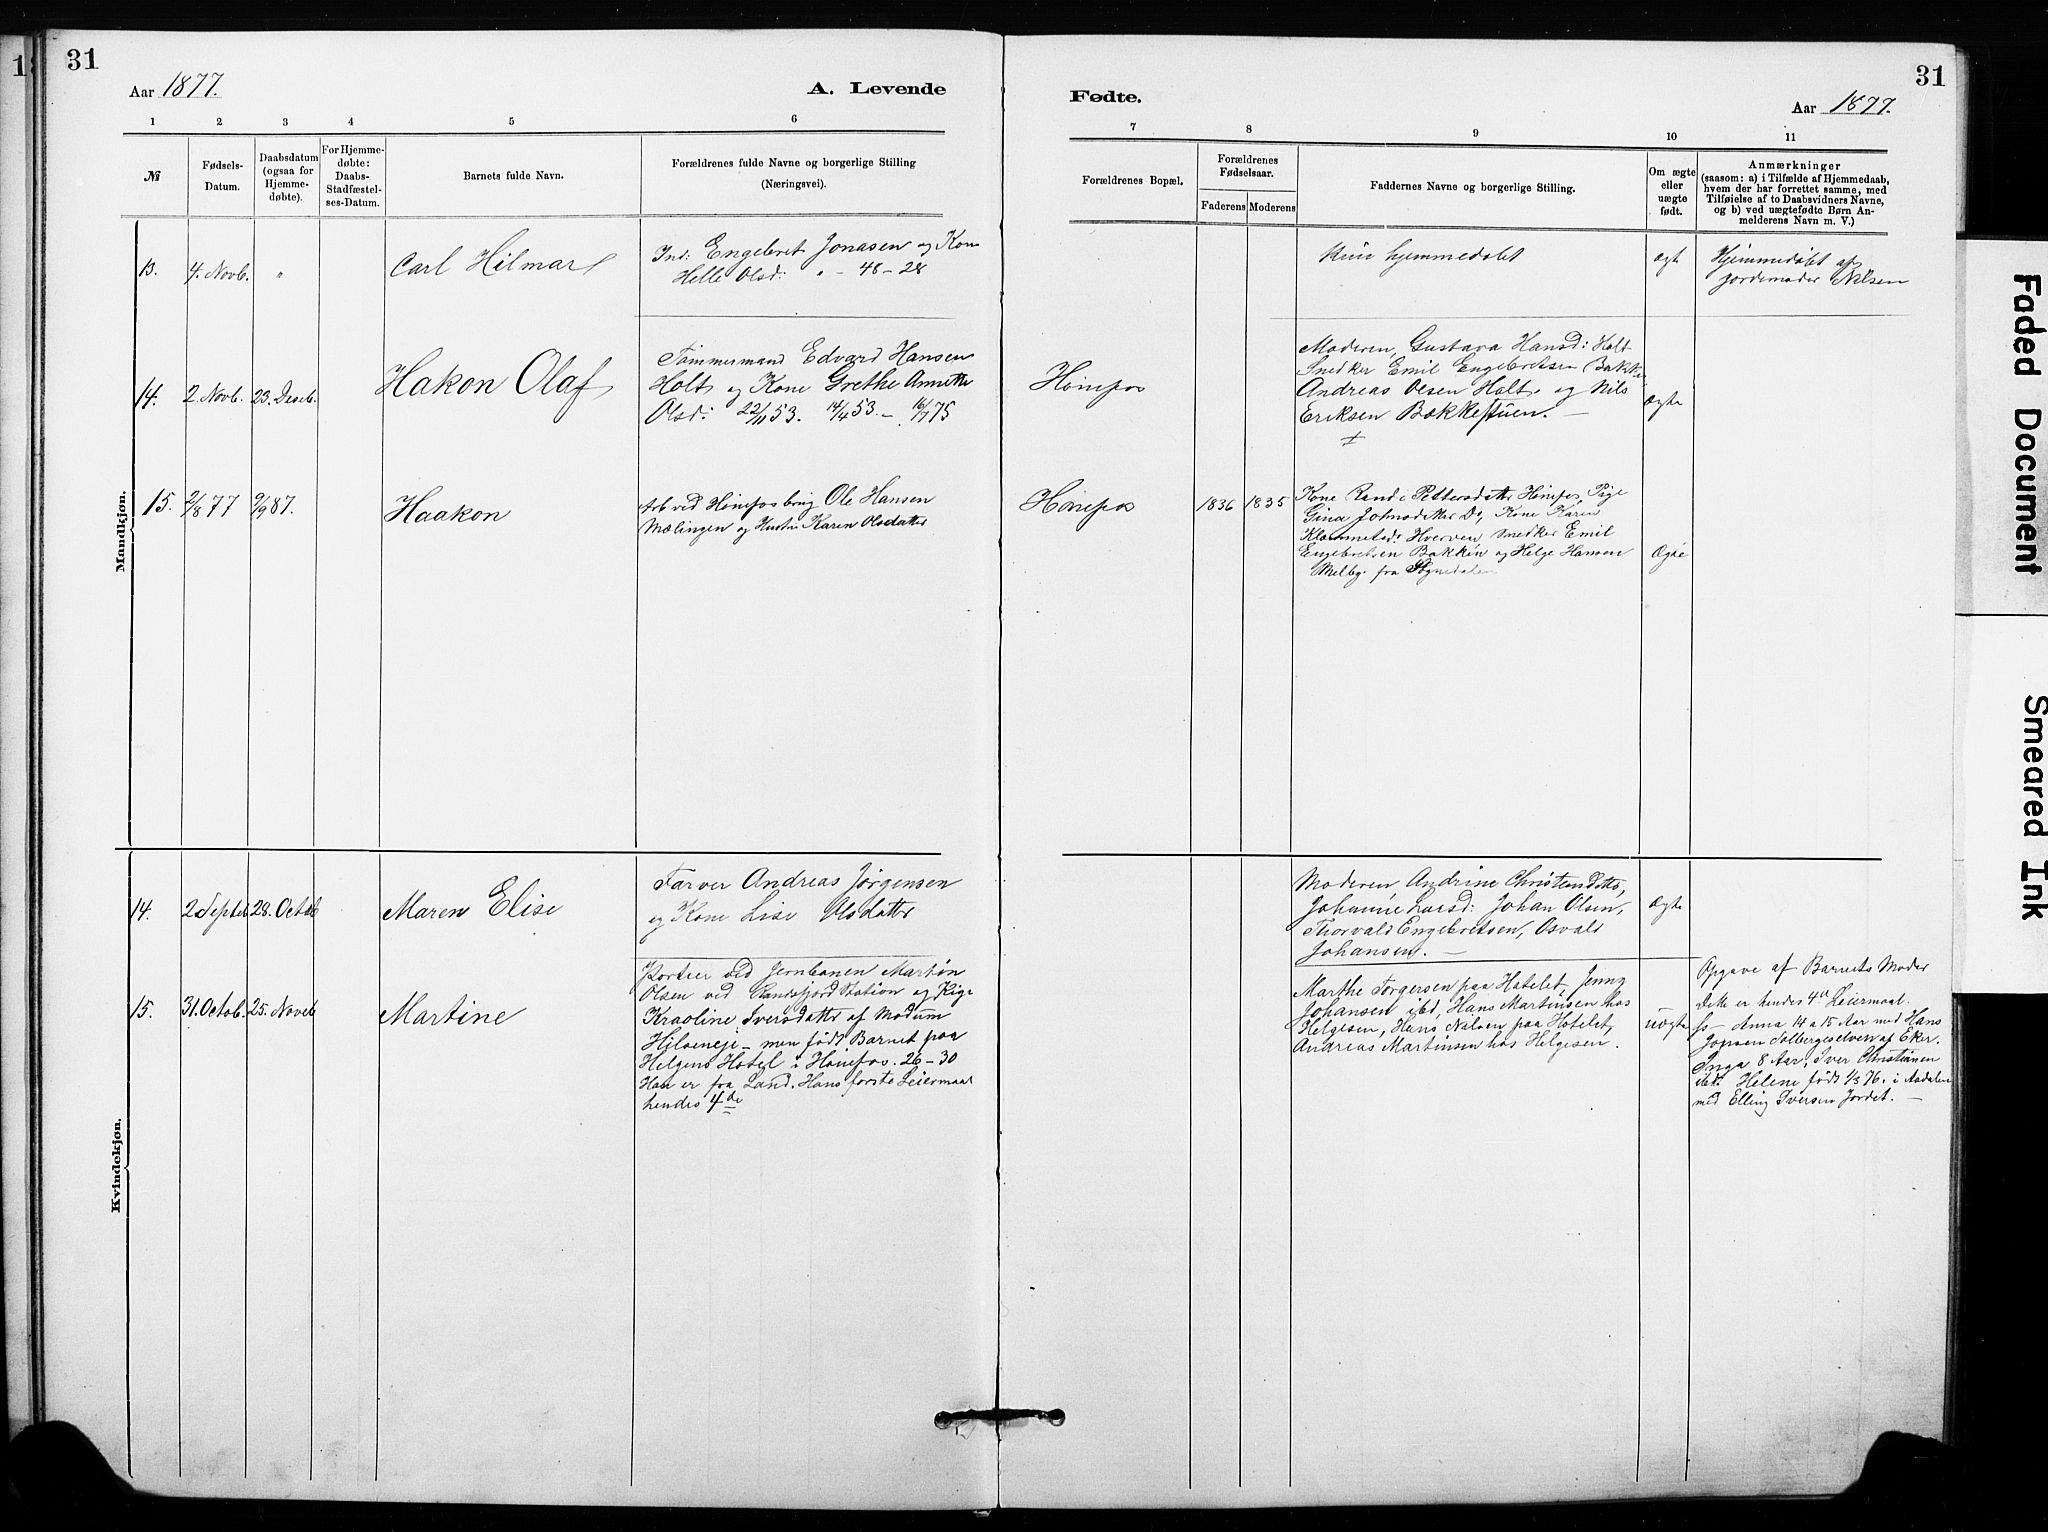 31
Aar 1877.
A. Levende
1 2 3 4 5 6
№
Fødsels-
Datum.
Daabsdatum
(ogsaa for
Hjemme-
døbte).
For Hjemme-
døbte:
Daabs-
Stadfæstel-
ses-Datum.
Barnets fulde Navn.
Forældrenes fulde Navne og borgerlige Stilling
(Næringsvei).
Mandkjøn.
13. 4. Novb. " Carl Hilmar
Ind: Engebret Jonasen og Kone
Helle Olsd: " - 48-28
14. 2. Novb. 23. Decb. Hakon Olaf
Tømmermand Edvard Hansen
Holt og Kone Grethe Annette
Olsd: 22/11 53. 14/4 53. - 16/7 75
15. 2/8 77 9/9 87. Haakon
Arb ved Hønefos brug Ole Hansen
Mælingen og Hustru Karen Olsdatter
Kvindekjøn.
14. 2 Septb 28. Octob Maren Elise
Farver Andreas Jørgensen
og Kone Lise Olsdatter
15. 31. Octob. 25. Novb Martine
Portier ved Jernbanen Martin
Olsen ved Randsfjord Station og Pige
Kraoline Iversdatter af Modum
Hilseneje - men født Barnet paa
Helgens Hotel i Hønefos. 26-30
Han er fra Land. Hans første Leiermaal
hendes 4de
31
Fødte.
Aar 1877.
7 8 9 10 11
Forældrenes Bopæl.
Forældrenes
Fødselsaar.
Faderens Moderens
Faddernes Navne og borgerlige Stilling.
Om ægte
eller
uægte
født.
Anmærkninger
(saasom: a) i Tilfælde af Hjemmedaab,
hvem der har forrettet samme, med
Tilføielse af to Daabsvidners Navne,
og b) ved uægtefødte Børn An-
melderens Navn m. V.)
Kun hjemmedøbt ægt
Hjemmedøbt af
Jordemoder Nilsen
Hønefos
Moderen, Gustava Hansd: Holt
Snedker Emil Engebretsen Bakke
Andreas Olsen Holt og Nils
Eriksen Bakkestuen. -
Ægte
Hønefos 1836 1835
Kone Randi Pettersdatter Hønefos, Pige
Gina Johnsdatter Do, Kone Karen
Klemmetsd: Hverven, Snedker Emil
Engebretsen Bakken og Helge Hansen
Melby fra Sognedalen
Ægte
Moderen, Andrine Christensdatter,
Johanne Larsd: Johan Olsen,
Thorvald Engebretsen, Osvald
Johansen. -
Ægte
Marthe Torgersen paa Hotelet, Jenny
Johansen ibd, Hans Martinsen hos
Helgesen, Hans Nilsen paa Hotelet,
Andreas Martinsen hos Helgesen.
uægte
Opgave af Barnets Moder
Dette er hendes 4de Leiermaal.
Anna 14 a 15 Aar med Hans
Jonsen Solbergselven af Eker.
Inga 8 Aar, Iver Christiansen
ibd. Helene født 1/3 76. i Aadalen
med Elling Iversen Jordet. -
Faded Document
Smeared Ink